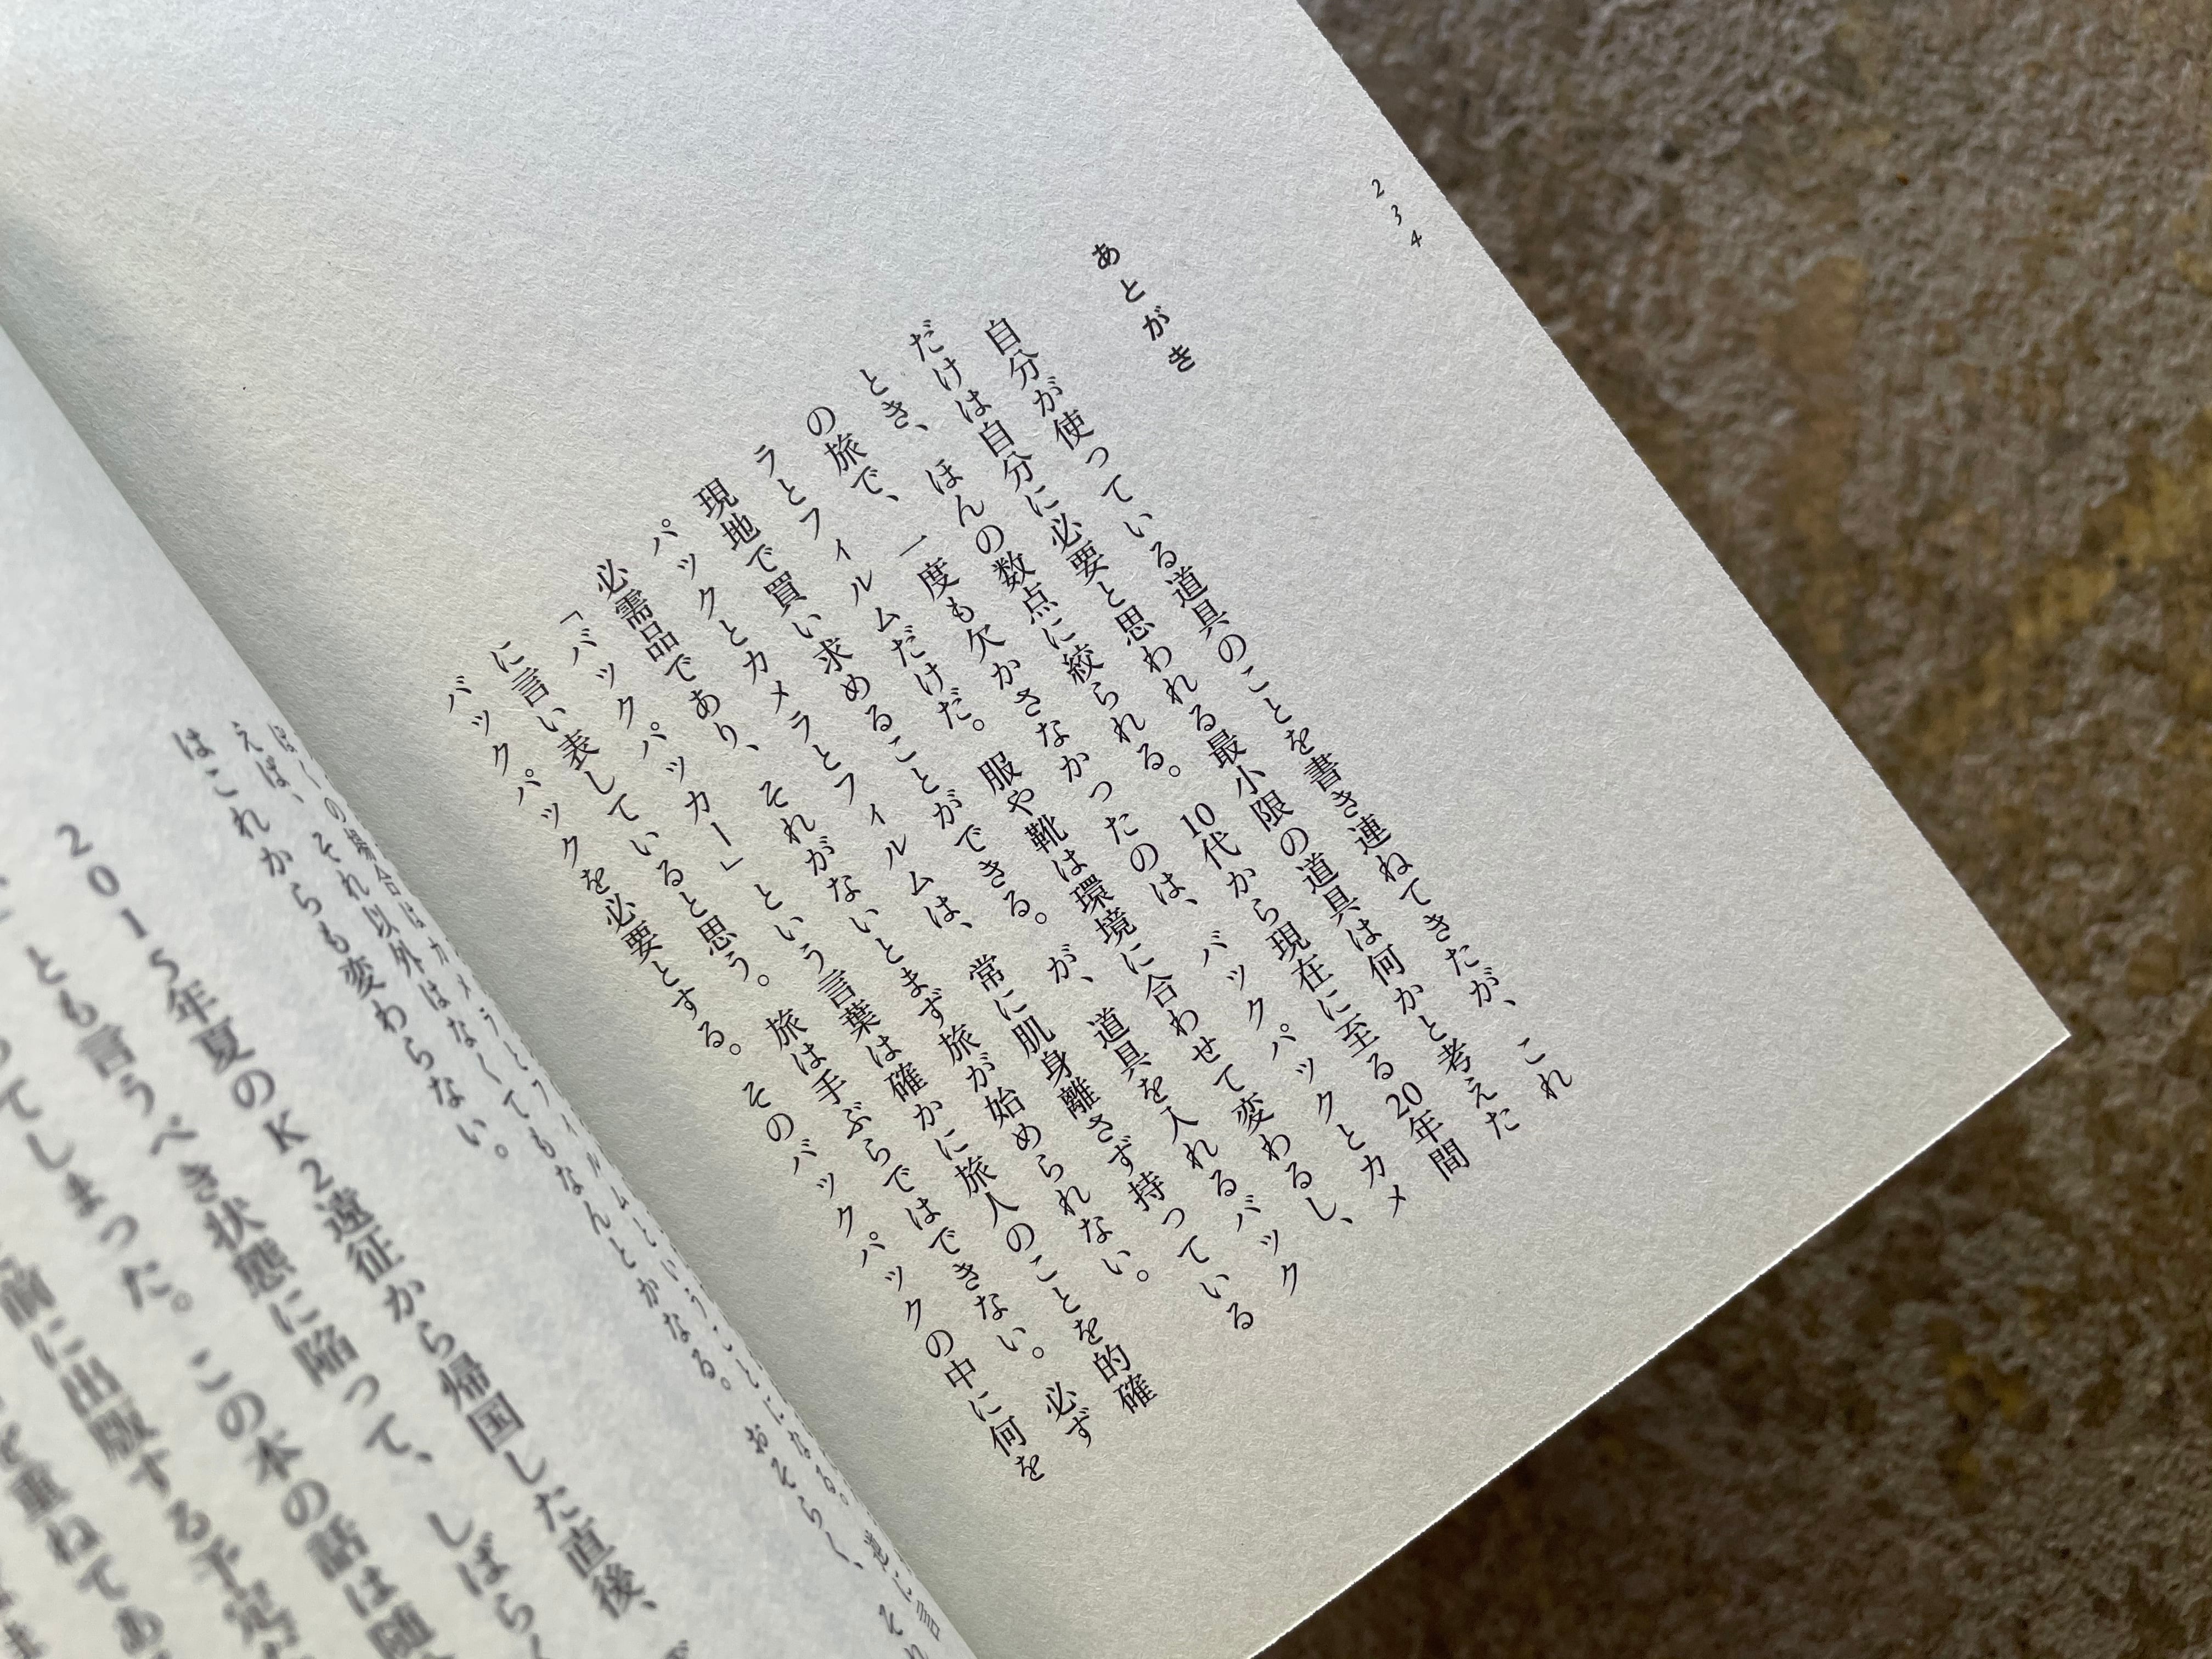 234
あとがき
自分が使っている道具のことを書き連ねてきたが、これ
だけは自分に必要と思われる最小限の道具は何かと考えた
とき、ほんの数点に絞られる。10代から現在に至る20年間
の旅で、一度も欠かさなかったのは、バックパックとカメ
ラとフィルムだけだ。服や靴は環境に合わせて変わるし、
現地で買い求めることができる。が、道具を入れるバック
パックとカメラとフィルムは、常に肌身離さず持っている
必需品であり、それがないとまず旅が始められない。
「バックパッカー」という言葉は確かに旅人のことを的確
に言い表していると思う。旅は手ぶらではできない。必ず
バックパックを必要とする。そのバックパックの中に何を
ぼくの場合はカメラとフィルムということになる。逆に言
えば、それ以外はなくてもなんとかなる。おそらく、それ
はこれからも変わらない。
2015年夏のK2遠征から帰国した直後、
とも言うべき状態に陥って、しばらく
ってしまった。この本の話は随
前に出版する予定
を重ねてあ